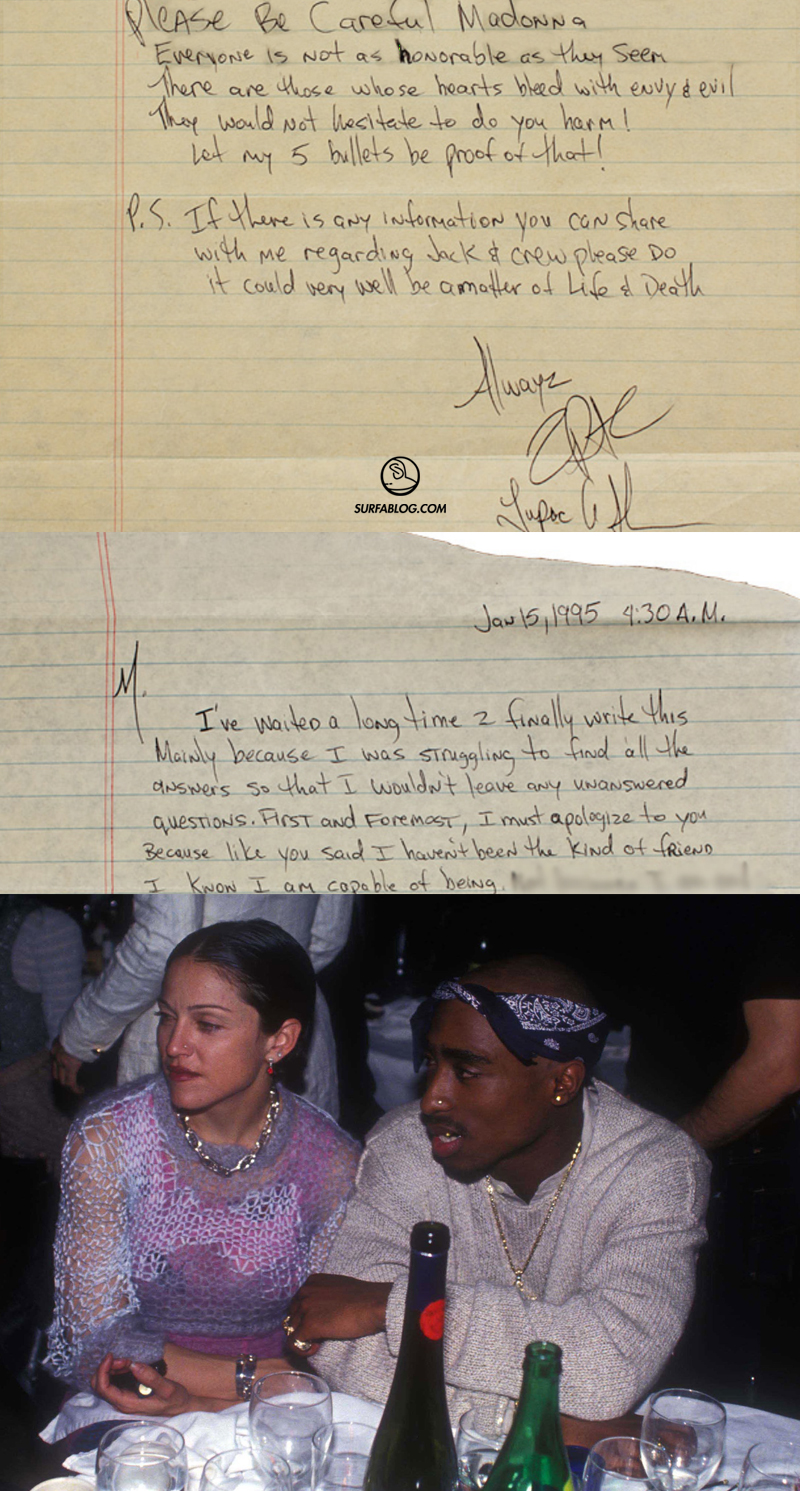 Please Be Careful Madonna
Everyone is not as honorable as they seem
There are those whose hearts bleed with envy & evil
They would not hesitate to do you harm!
Let my 5 bullets be proof of that!
P.S. If there is any information you can share
with me regarding Jack & crew please DO
it could very well be a matter of Life & Death
Always
SURFABLOG.COM
Tupac
Jan 15, 1995 4:30 A.M.
M.
I've waited a long time 2 finally write this
Mainly because I was struggling to find all the
answers so that I wouldn't leave any unanswered
questions. First and Foremost, I must apologize to you
Because like you said I haven't been the kind of friend
I know I am capable of being.